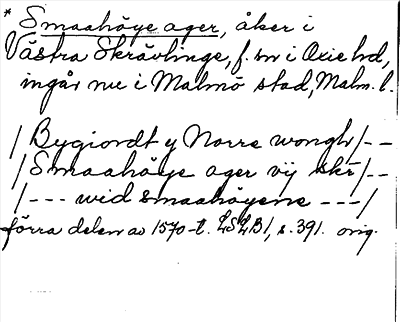 * Smaahöye ager, åker i
Västra Skrävlinge, f. sn i Oxie hd,
ingår nu i Malmö stad, Malm. l.
/ Bygiordt y Norre wongh /--
/ Smaahöye ager vij skr /--
/--- wid smaahöyene ---/
förra delen av 1570-t. LSLB1, s. 391. orig.